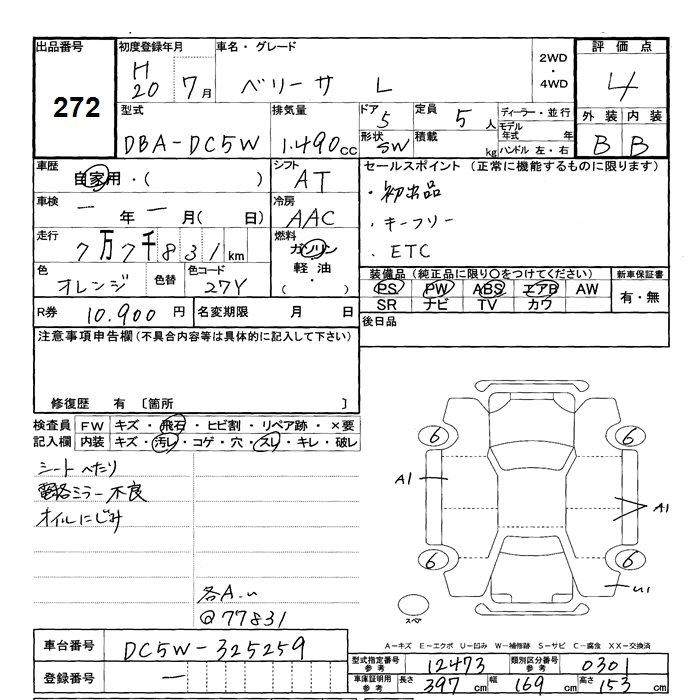 出品番号
272
初度登録年月
H
20 7月
車名・グレード
ベリーサ L
2WD
・
4WD
評価点
4
型式
DBA-DC5W
排気量
1.490cc
ドア
5
形状
SW
定員
5人
積載
kg
ディーラー・並行
モデル
年式 年
ハンドル 左・右
外装 内装
B B
車歴
自家用・( )
シフト
AT
セールスポイント (正常に機能するものに限ります)
・初出品
・キーフリー
・ETC
車検
一年一月( 日)
冷房
AAC
走行
7万7千831km
燃料
ガソリン
軽油
・( )
色
オレンジ
色替
色コード
27Y
装備品(純正品に限り○をつけてください)
PS PW ABS エアB AW
SR ナビ TV カワ
新車保証書
有・無
R券 10.900円
名変期限 月 日
後日品
注意事項申告欄(不具合内容等は具体的に記入して下さい)
修復歴 有 〔箇所 〕
検査員 FW キズ・飛石・ヒビ割・リペア跡・×要
記入欄 内装 キズ・汚レ・コゲ・穴・スレ・キレ・破レ
シートへたり
電格ミラー不良
オイルにじみ
各A.u
@77831
6 6
A1 A1
6 6
U1
スペア
A-キズ E-エクボ U-凹み W-補修跡 S-サビ C-腐食 XX-交換済
車台番号 DC5W-325259
登録番号 一
型式指定番号
参考
12473
類別区分番号
参考
0301
車庫証明用
参考
長さ 397cm 幅 169cm 高さ 153cm